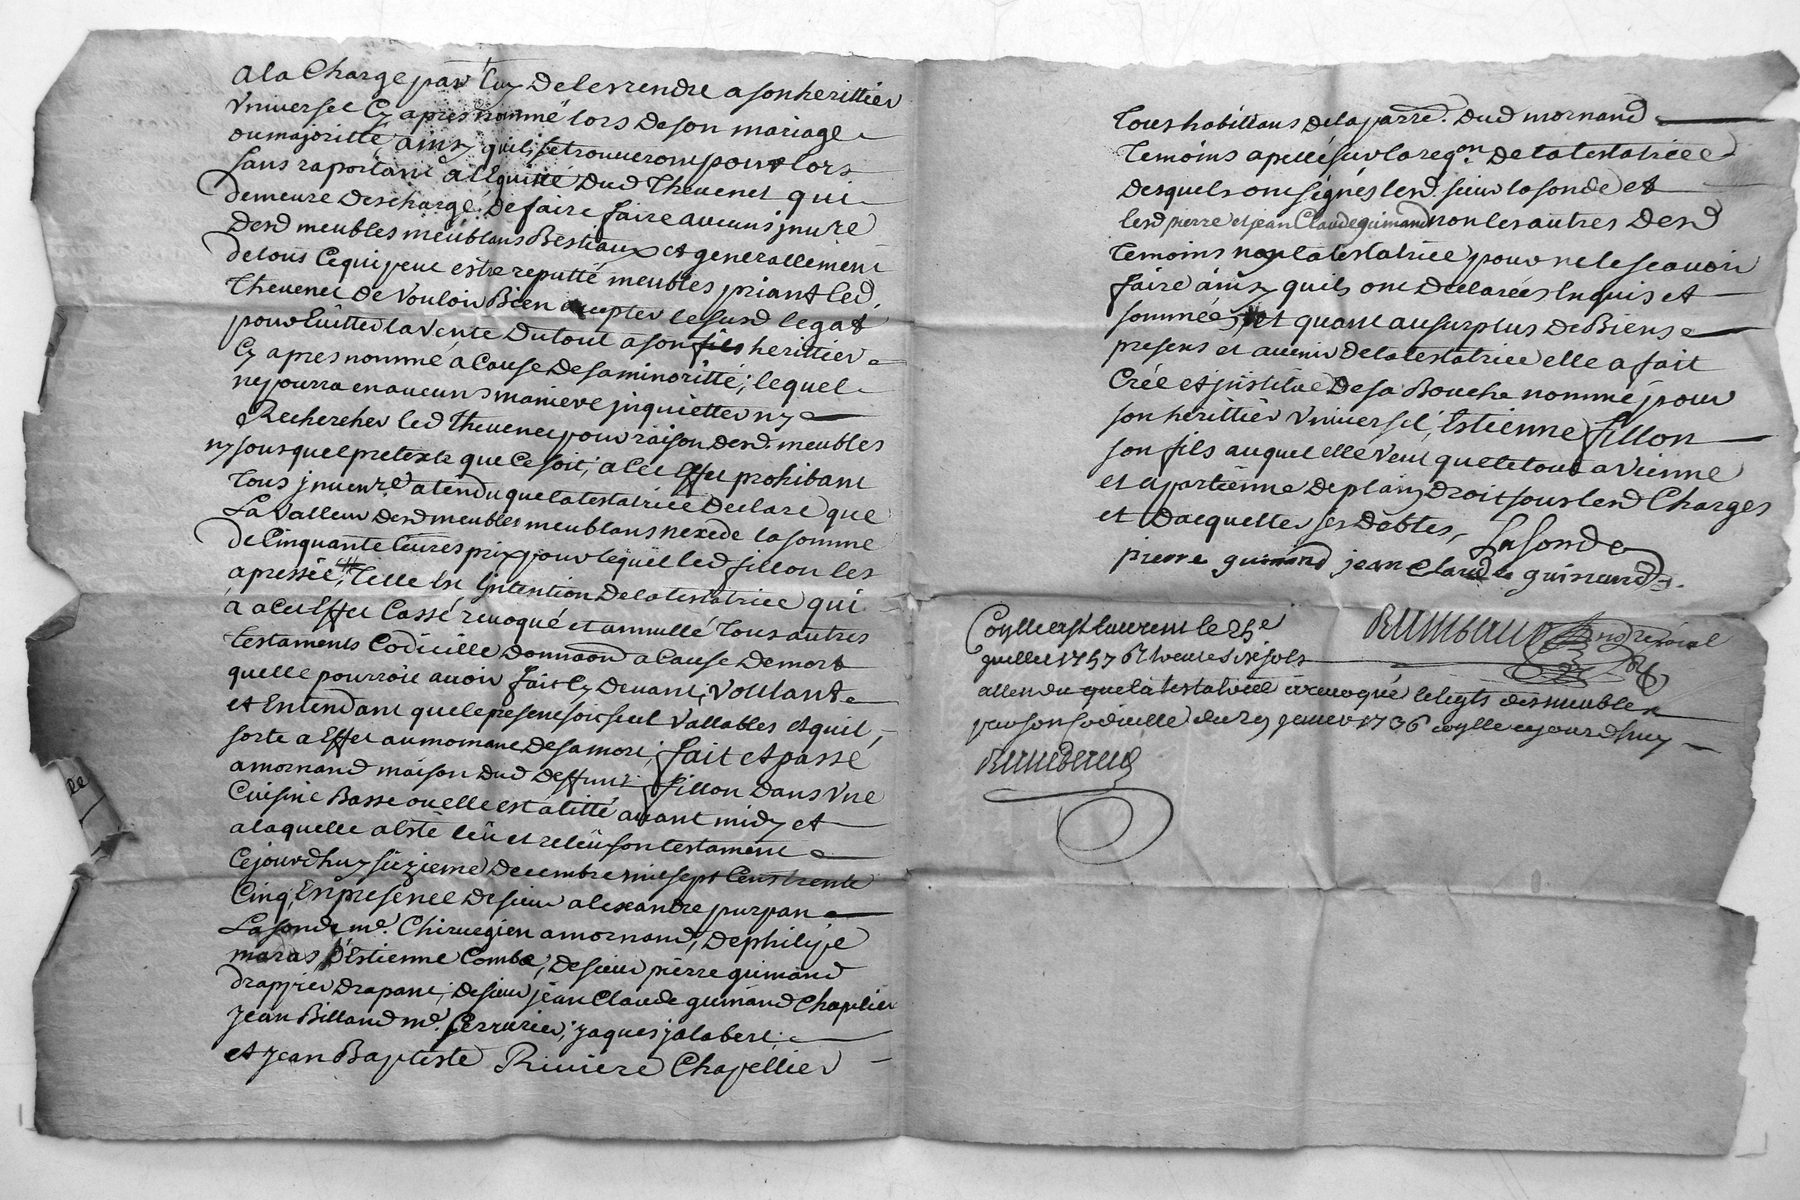 a la Charge par luy de les rendre a son herittier
vniversel Cy apres nommé lors de son mariage
ou majoritté, ainsy quils se trouueront pour lors
sans raportant a l'Equitté dud Theuenet qui
demeure descharge de faire faire aucuns jnure
desd meubles meublans Bestiaux et generallement
de tous Ce qui peut estre reputté meubles priant led.
Theuenet de Vouloir Bien accepter le susd legat
pour Euitter la vente du tout a son fils herittier
Cy apres nommé a Cause de sa minoritté; lequel
ne pourra en aucuns maniere jnquietter ny
Rechercher led Theuenet pour raison desd meubles
ny sous quel pretexte que Ce soit; a Cet Effet prohibant
Tous jnuenre atendu que la testatrice Declare que
La Valleur desd meubles meublans n'exede la somme
de Cinquante liures prix pour lequel led fillon les
a pressée, Telle Est l'jntention de la testatrice qui
a a Cet Effet Cassé reuoqué et annullé Tous autres
testaments Codicille donnaon a Cause de mort
quelle pourroit auoir fait Cy deuant, Voullant
et Entendant que le present soit seul Vallables et quil
sorte a Effet au momant de sa mort; fait et passé
a mornand maison dud deffunt fillon dans Vne
Cuisine Basse ou elle est alitté auant midy et
a laquelle a Esté leü et releü son testament
Cejourdhuy sizieme decembre mil sept Cens trente
Cinq, En presence de sieur alexandre purpan
Lasonde md. Chirurgien a mornand, de philipe
maras d'Estienne Combe, de sieur pierre guimand
drappier drapant, de sieur jean Claude guimand Chaplier
jean Billand md. Serrurier, jaques jalabert
et jean Baptiste Riuiere Chapellier
Tous habittans de la parre. dud mornand
Temoins apellés sur la reqon. de la testatrice
desquels ont signés lesd. sieur lasonde et
lesd pierre et jean Claude guimand non les autres desd
Temoins ny la testatrice pour ne le scauoir
faire ainsy quils ont declarées Enquis et
sommée, et quant au surplus de Biens
presens et auenir de la testatrice elle a fait
Crée et jnstitué de sa Bouche nommé pour
son herittier Vniversel, Estienne fillon
son fils auquel elle Veut que le tout a Vienne
et apartienne de plain droit sous lesd Charges
et dacquetter ses debtes, Lasonde
pierre guimand jean Claude guimand
Collé a st laurent le 25e
juillet 1757 heures six sols
attendu que la testatrice a reuoqué le legts des meubles
par son Codicille du 29 januier 1736 Collé cejourdhuy